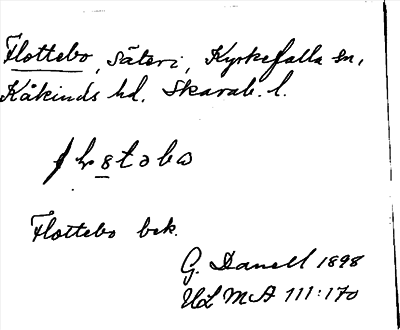 Flottebo, säteri, Kyrkefalla sn,
Kåkinds hd. Skarab. l.
Flottebo bek.
G. Danell 1898
ULMA 111:170